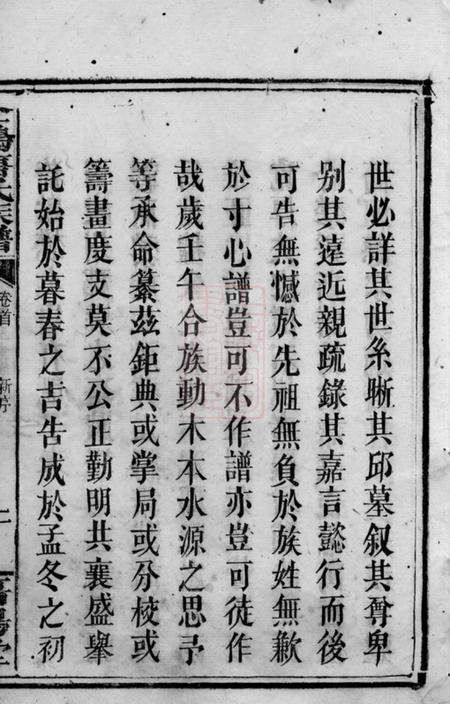 世必詳其世系晰其邱墓叙其尊卑
別其遠近親疏錄其嘉言懿行而後
可告無憾於先祖無負於族姓無歉
於寸心譜豈可不作譜亦豈可徒作
哉歲壬午合族動木本水源之思予
等承命纂茲鉅典或掌局或分校或
籌畫度支莫不公正勤明共襄盛舉
託始於暮春之吉告成於孟冬之初
氏族譜
卷首
新序
二